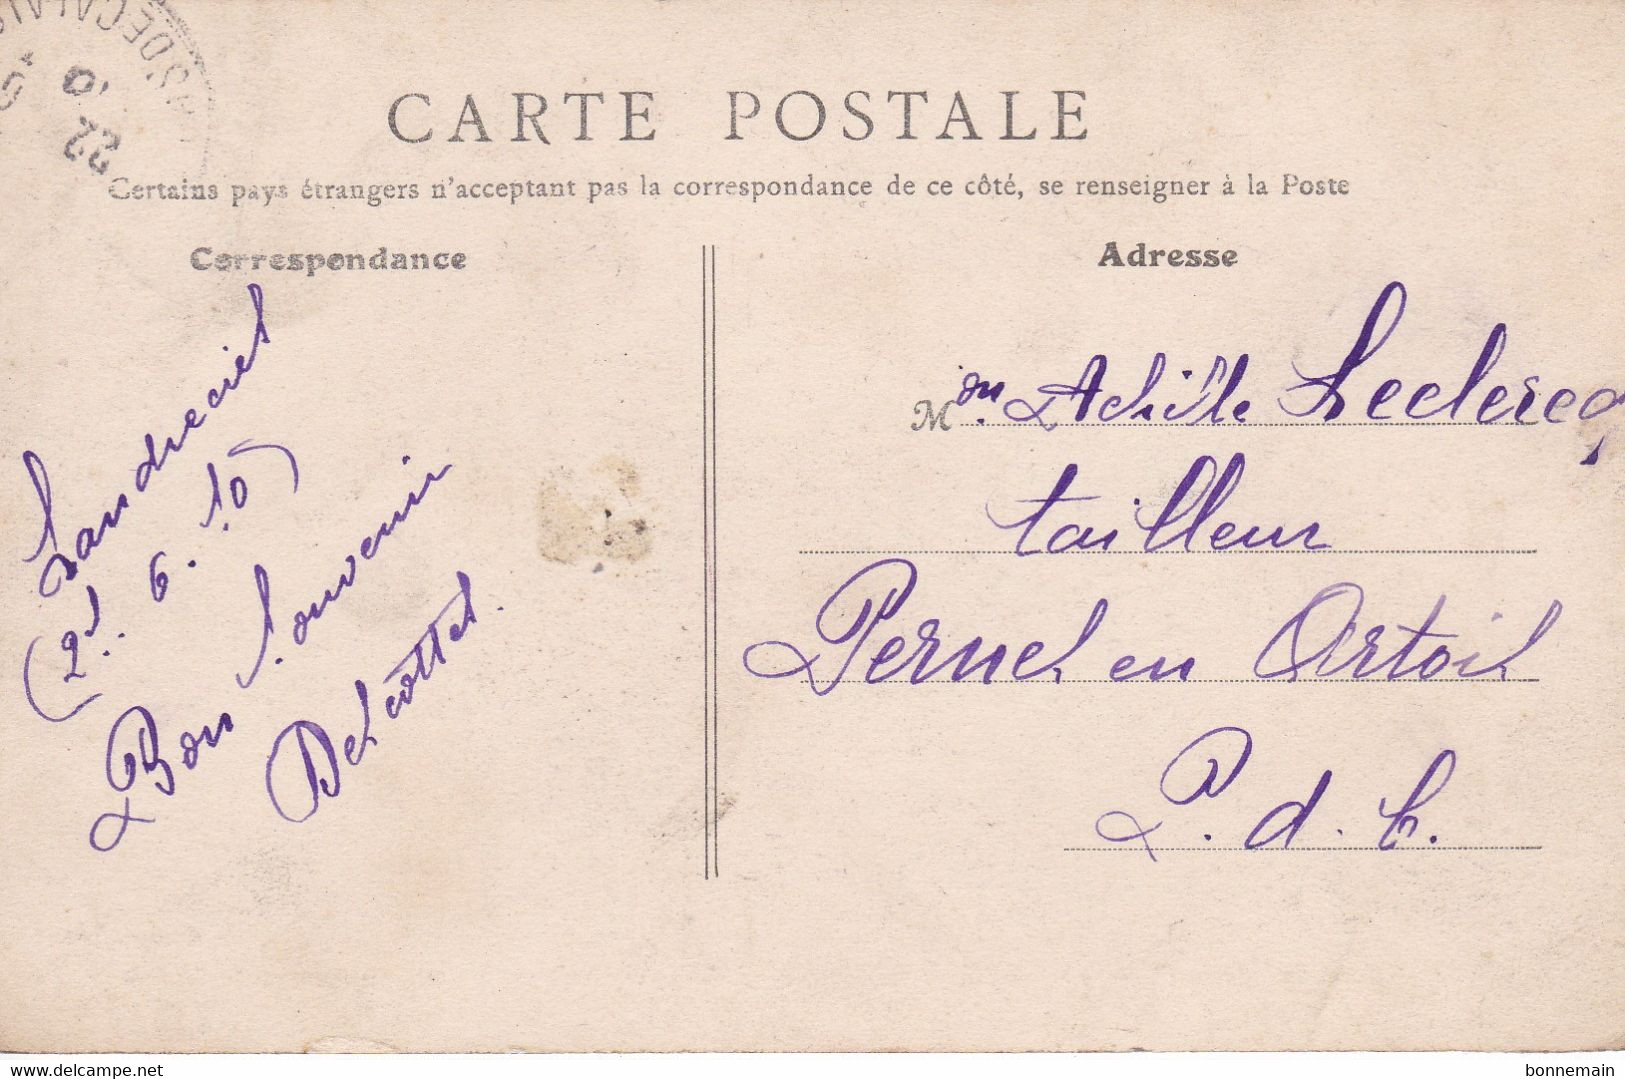 CARTE POSTALE
Certains pays étrangers n'acceptant pas la correspondance de ce côté, se renseigner à la Poste
Correspondance
Adresse
Landrecies
6.10)
Bon Souvenir
Mon. Achille Leclercq
tailleur
Pernes en Artois
P. d. C.
S DE CALAIS
22
www.delcampe.net
bonnemain